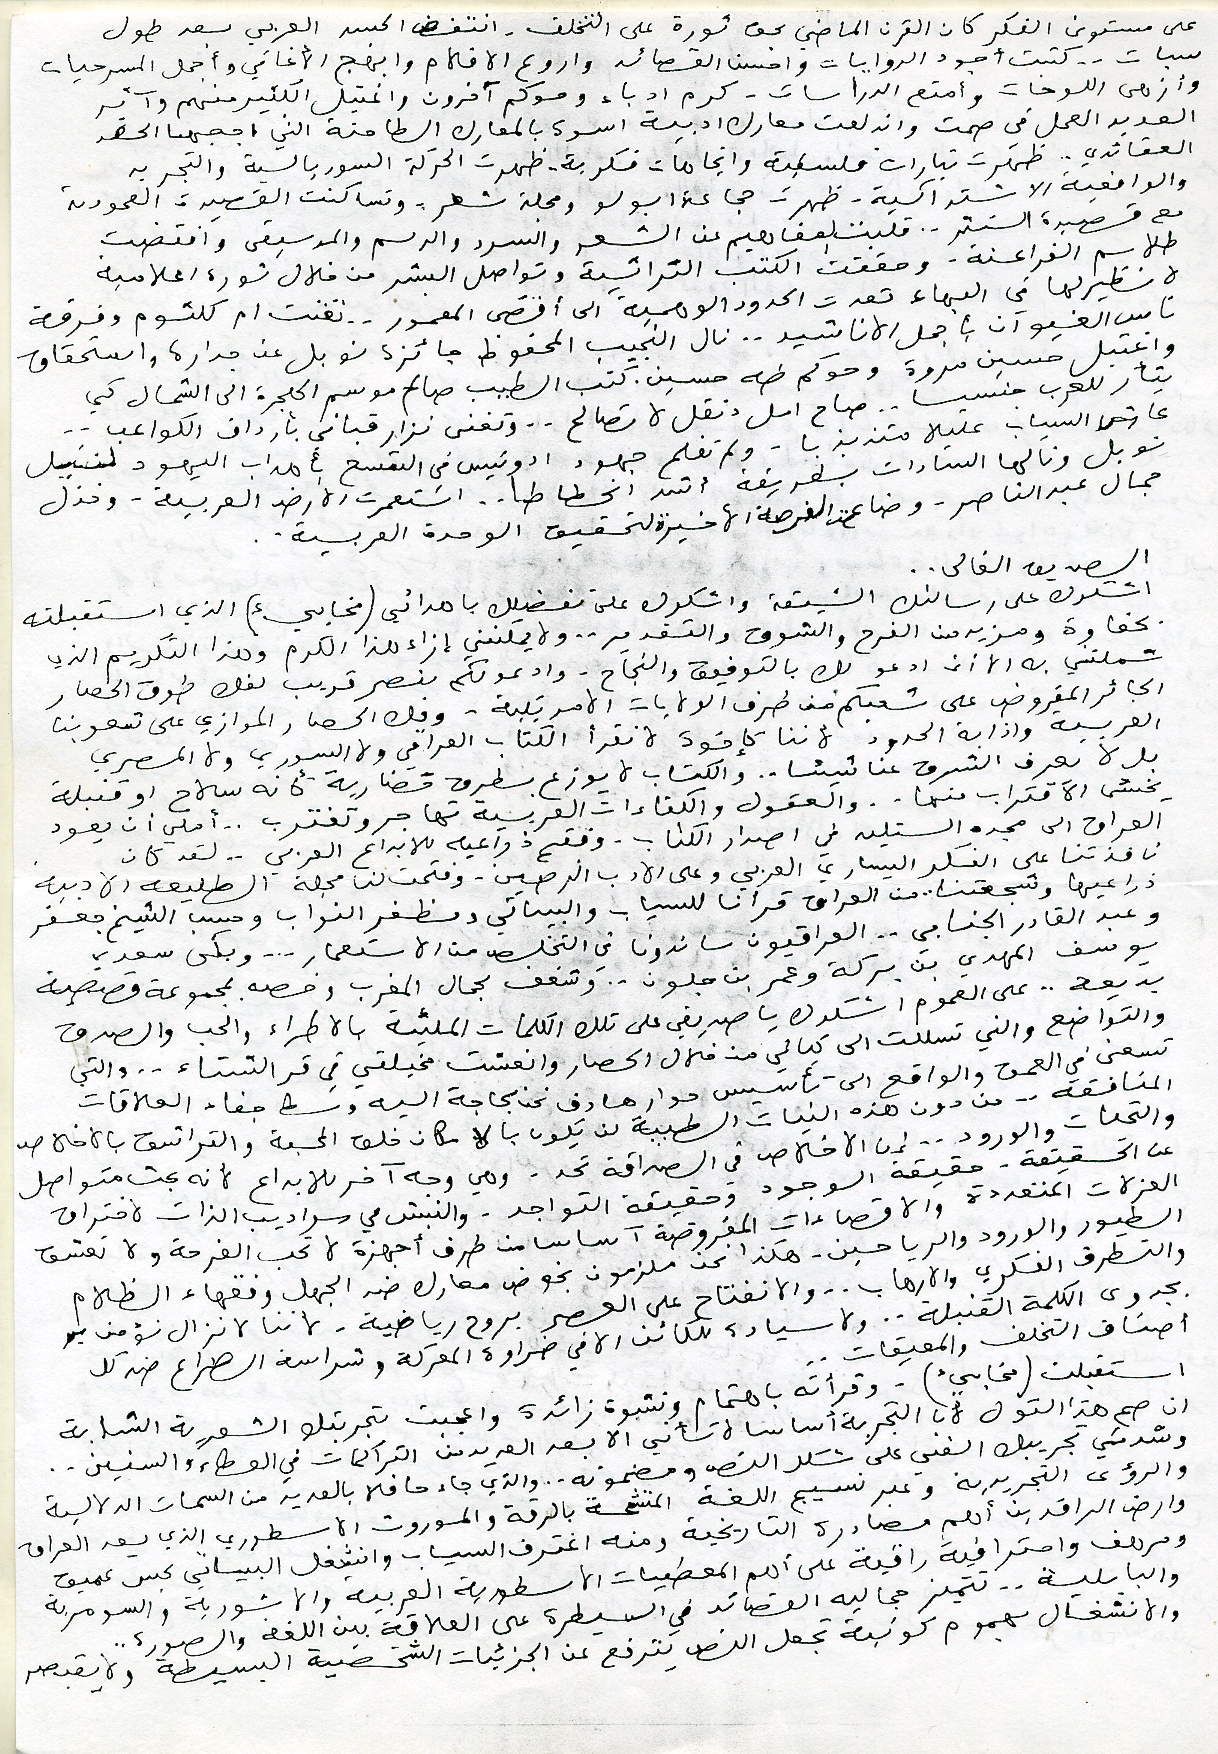 على مستوى الفكر كان القرن الماضي بحق ثورة على التخلف - انتفض الجسد العربي بعد طول
سبات .. كتبت أجود الروايات واحسن القصائد واروع الافلام وابهج الأغاني وأجمل المسرحيات
وأزهى اللوحات وأمتع الدراسات - كرم ادباء وحوكم آخرون واغتيل الكثير منهم وآثر
العديد العمل في صمت واندلعت معارك ادبية اسوة بالمعارك الطاحنة التي اججها الحقد
العقائدي .. ظهرت تيارات فلسفية واتجاهات فكرية - ظهرت الحركة السوريالية والتجريد
والواقعية الاشتراكية - ظهرت جماعة ابولو ومجلة شعر - وتساكنت القصيدة العمودية
مع قصيدة النثر .. قلبت المفاهيم عن الشعر والسرد والرسم والموسيقى وافتضت
طلاسم الفراعنة - وحققت الكتب التراثية وتواصل البشر من خلال ثورة اعلامية
لا نظير لها في البهاء تعدت الحدود الوهمية الى أقصى المعمور .. تغنت ام كلثوم وفرقة
ناس الغيوان بأجمل الاناشيد .. نال النجيب المحفوظ جائزة نوبل عن جدارة واستحقاق
واغتيل حسين مروة وحوكم طه حسين . كتب الطيب صالح موسم الهجرة الى الشمال كي
يثأر للعرب جنسيا .. صاح امل دنقل لا تصالح .. وتغنى نزار قباني بأرداف الكواعب ..
عاش السياب عليلا متذبذبا - ولم تفلح جهود ادونيس في التمسح بأهداب اليهود لنيل
نوبل ونالها السادات بطريقة أشد انحطاطا .. استعمرت الارض العربية - وخذل
جمال عبد الناصر - وضاعت الفرصة الاخيرة لتحقيق الوحدة العربية .
الصديق الغالي ..
اشكرك على رسالتك الشيقة واشكرك على تفضلك باهدائي (مخابيء) الذي استقبلته
بحفاوة ومزيد من الفرح والشوق والتقدير .. ولا يمكنني إزاء هذا الكرم وهذا التكريم الذي
شملتني به الا أن ادعو لك بالتوفيق والنجاح - وادعو لكم بنصر قريب لفك طوق الحصار
الجائر المفروض على شعبكم من طرف الولايات الامريكية - وفك الحصار الموازي على شعوبنا
العربية واذابة الحدود لاننا كإخوة لا نقرأ الكتاب العراقي ولا السوري ولا المصري
بل لا يعرف الشرق عنا شيئا .. والكتاب لا يوزع بطرق حضارية كأنه سلاح او قنبلة
يخشى الاقتراب منها .. والعقول والكفاءات العربية تهاجر وتغترب .. أملي أن يعود
العراق الى مجده التليد في اصدار الكتاب - وفتح ذراعيه للابداع العربي .. لقد كان
نافذتنا على الفكر اليساري العربي وعلى الادب الرصين - وفتحت لنا مجلة الطليعة الادبية
ذراعيها وشجعتنا .. من العراق قرأنا للسياب والبياتي ومظفر النواب وحسب الشيخ جعفر
وعبد القادر الجنابي .. العراقيون ساندونا في التخلص من الاستعمار ... وبكى سعدي
يوسف المهدي بن بركة وعمر بن جلون .. وشغف بجمال المغرب وخصه بمجموعة قصصية
بديعة .. على العموم اشكرك يا صديقي على تلك الكلمات المليئة بالاطراء والحب والصدق
والتواضع والتي تسللت الى كياني من خلال الحصار وانعشت مخيلتي في قر الشتاء ... والتي
تسعى في العمق والواقع الى تأسيس حوار هادف نحن بحاجة اليه وسط جفاء العلاقات
المنافقة .. من دون هذه النيات الطيبة لن يكون بالامكان خلق المحبة والتراشق بالاخلاص
والتحيات والورود .. إن الاخلاص في الصداقة تحد - وهي وجه آخر للابداع لأنه بحث متواصل
عن الحقيقة - حقيقة الوجود وحقيقة التواجد - والنبش في سراديب الذات لاختراق
العزلات المتعددة والاقصاءات المفروضة أساسا من طرف أجهزة لا تحب الفرحة ولا تعشق
الطيور والورود والرياحين - هكذا نحن ملزمون بخوض معارك ضد الجهل وفقهاء الظلام
والتطرف الفكري والارهاب ... والانفتاح على العصر بروح رياضية - لاننا لا نزال نؤمن
بجدوى الكلمة القنبلة .. ولا سيادة للكائن الا في ضراوة المعركة وشراسة الصراع ضد كل
أصناف التخلف والمعيقات ..
استقبلت (مخابيء) - وقرأته باهتمام ونشوة زائدة واعجبت بتجربتك الشعرية الشابة
ان صح هذا القول لأن التجربة أساسا لا تتأتى الا بعد العديد من التراكمات في العطاء والسنين ..
وشدني تجريبك الفني على شكل النص ومضمونه .. والذي جاء حافلا بالعديد من السمات الدلالية
والرؤى التجريدية وعبر نسيج اللغة المتشحة بالرقة والموروث الاسطوري الذي يعد العراق
وارض الرافدين أهم مصادره التاريخية ومنه اغترف السياب وانشغل البياتي بحس عميق
ومرهف واحترافية راقية على أهم المعطيات الاسطورية العربية والاشورية والسومرية
والبابلية .. تتميز جمالية القصائد في السيطرة على العلاقة بين اللغة والصورة ..
والانشغال بهموم كونية تجعل النص يترفع عن الجزئيات الشخصية البسيطة ولا يقتصر